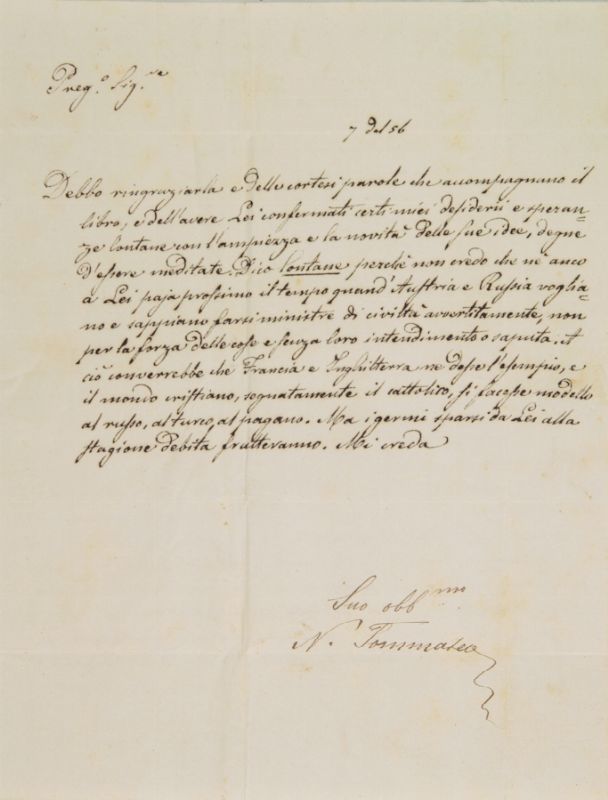 Preg.o Sig.re
7 del 56
Debbo ringraziarla e delle cortesi parole che accompagnano il
libro, e dell'avere Lei confermati certi miei desiderii e speran-
ze lontane con l'ampiezza e la novità delle sue idee, degne
d'essere meditate. Dico lontane perchè non credo che nè anco
a Lei paja prossimo il tempo quand'Austria e Russia voglia-
no e sappiano farsi ministre di civiltà avvertitamente, non
per la forza delle cose e senza loro intendimento o saputa. A
ciò converrebbe che Francia e Inghilterra ne desse l'esempio, e
il mondo cristiano, segnatamente il cattolico, si facesse modello
al russo, al turco, al pagano. Ma i germi sparsi da Lei alla
stagione debita frutteranno. Mi creda
Suo obb.mo
N. Tommaseo